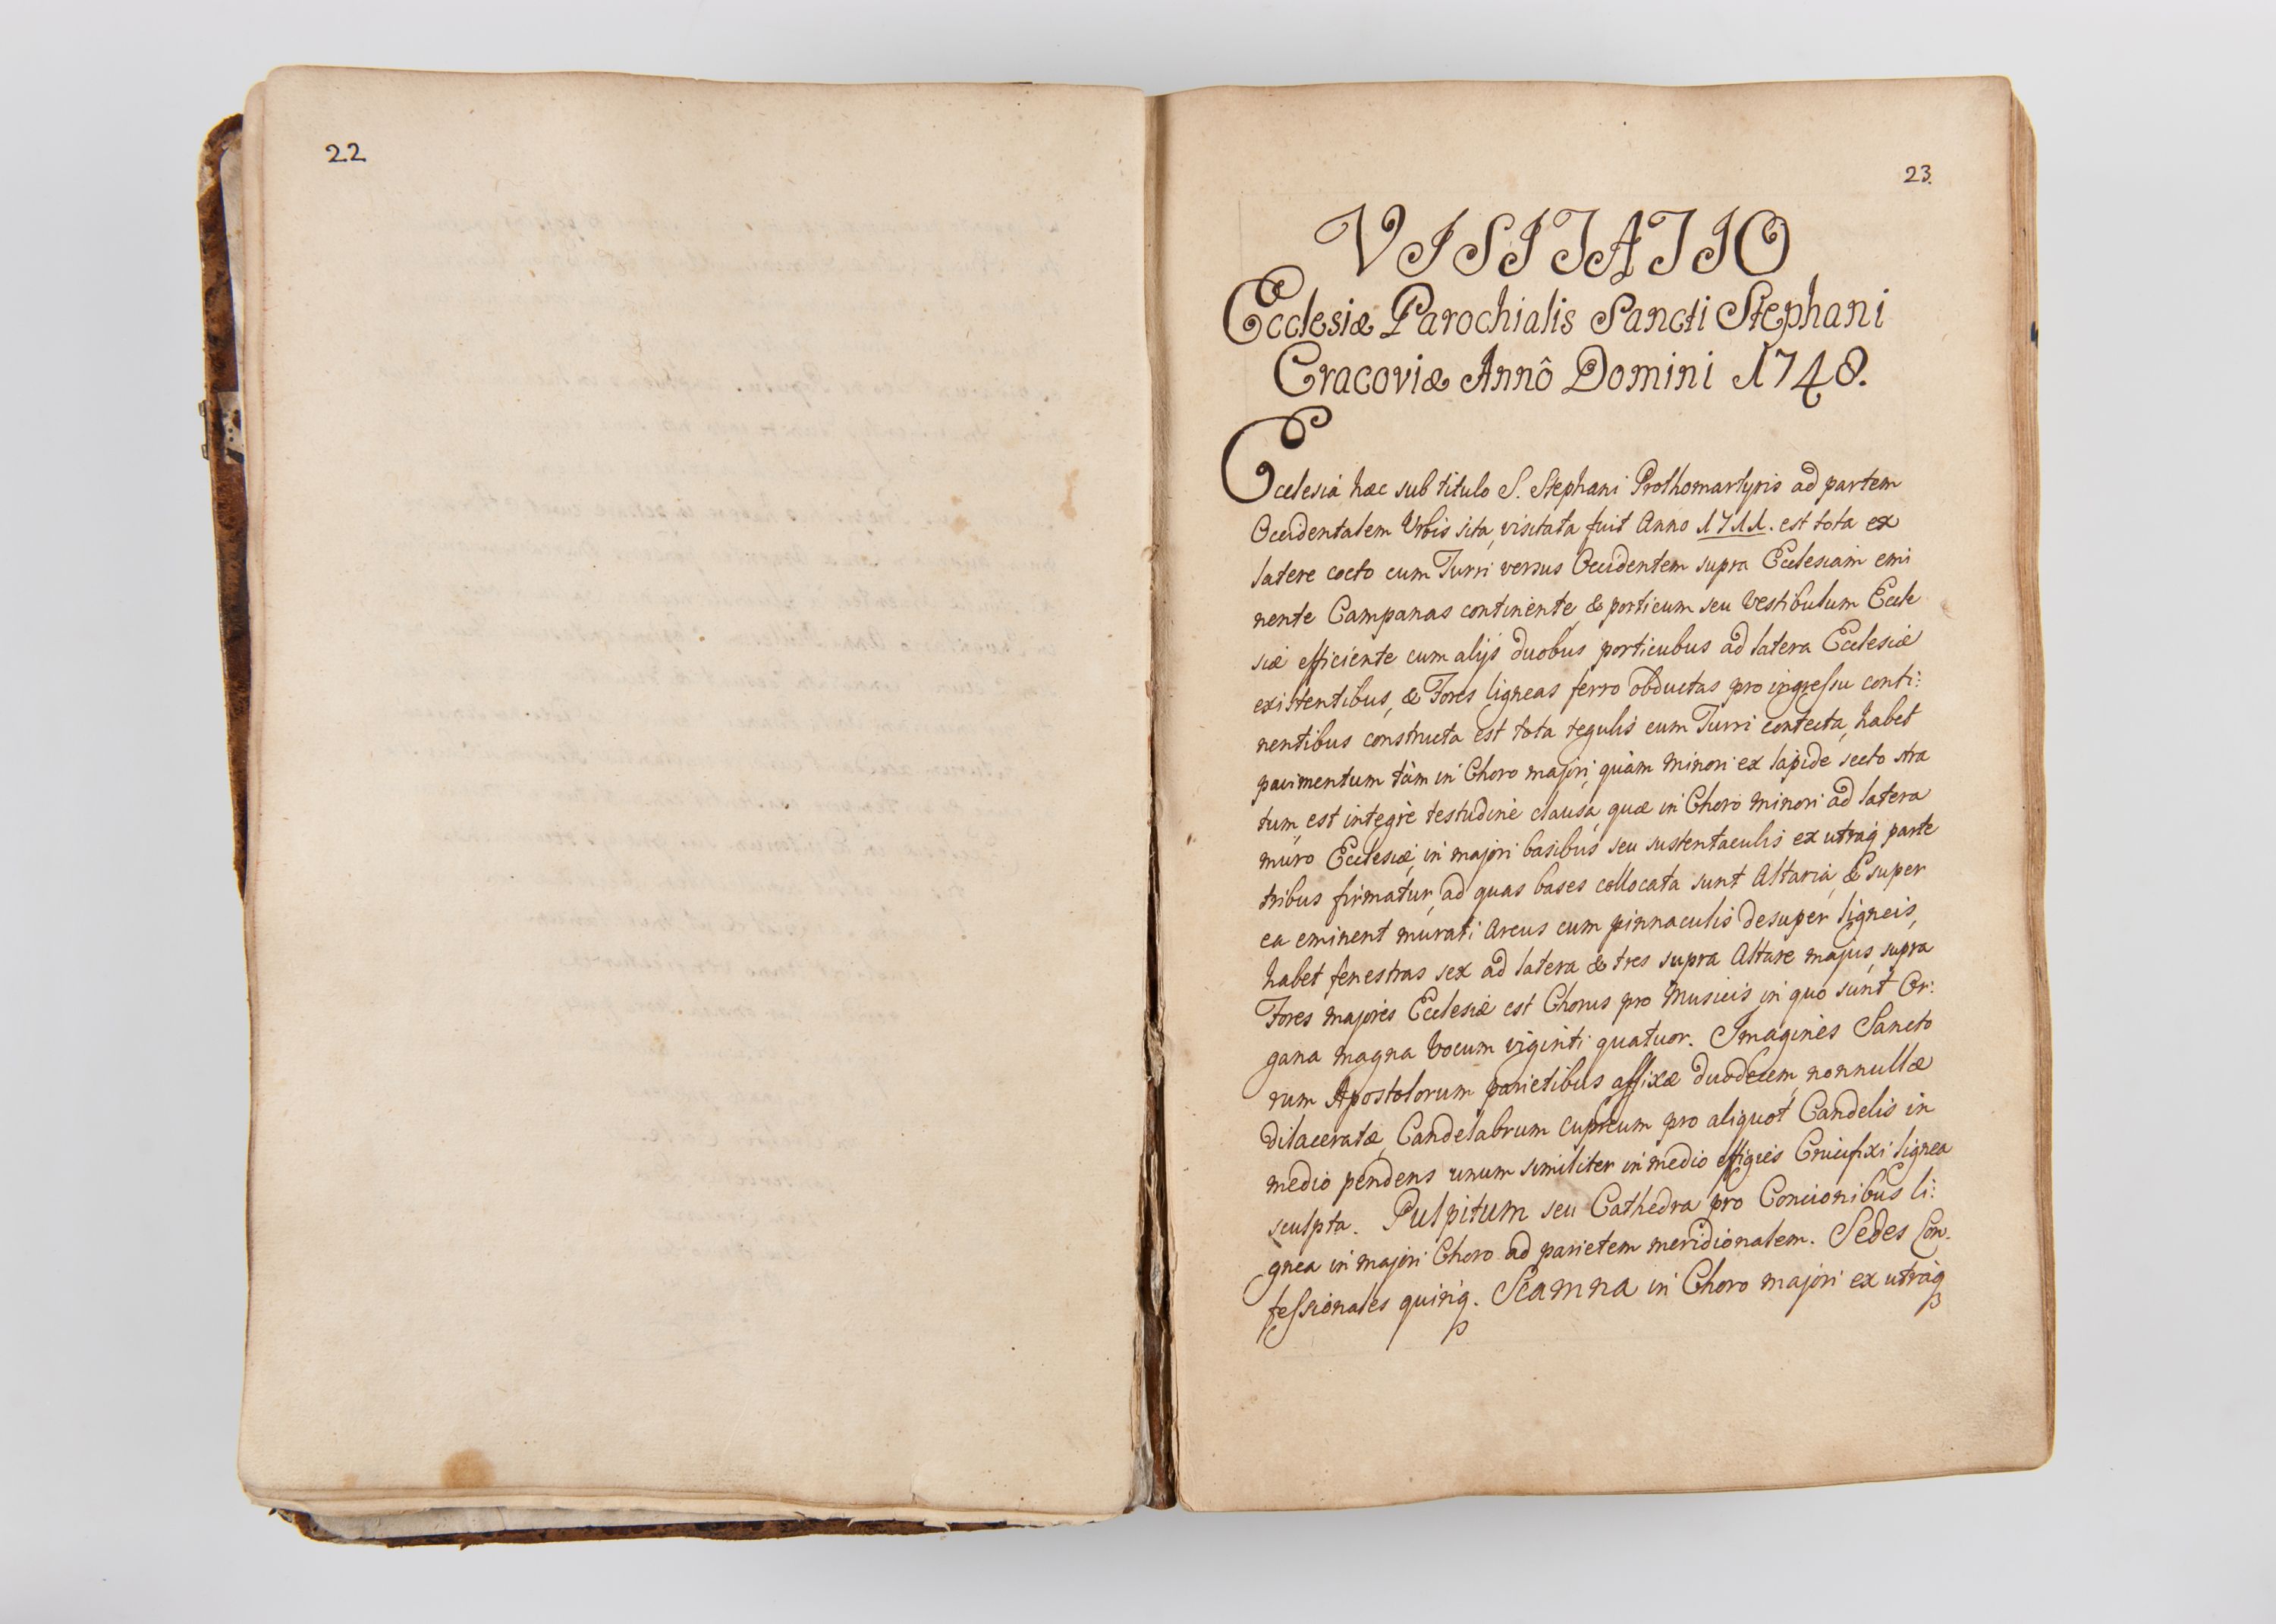 22
23.
VISITATIO
Ecclesiæ Parochialis Sancti Stephani
Cracoviæ Annô Domini 1748.
Ecclesia hæc sub titulo S. Stephani Prothomartyris ad partem
Occidentalem Urbis sita, visitata fuit Anno 1711. est tota ex
latere cocto cum Turri versus Occidentem supra Ecclesiam emi
nente Campanas continente, & porticum seu Vestibulum Eccle
siæ efficiente cum alijs duobus porticubus ad latera Ecclesiæ
existentibus, & Fores ligneas ferro obductas pro ingressu conti:
nentibus constructa est tota tegulis cum Turri contecta, habet
pavimentum tàm in Choro majori, quàm minori ex lapide secto stra
tum, est integrè testudine clausa, quæ in Choro minori ad latera
muro Ecclesiæ, in majori basibus seu sustentaculis ex utraq parte
tribus firmatur, ad quas bases collocata sunt Altaria, & super
ea eminent murati Arcus cum pinnaculis desuper ligneis,
habet fenestras sex ad latera & tres supra Altare majus, supra
Fores majores Ecclesiæ est Chorus pro Musicis in quo sunt Or:
gana magna Vocum viginti quatuor. Imagines Sancto
rum Apostolorum parietibus affixæ duodecem, nonnullæ
dilaceratæ, Candelabrum cupreum pro aliquot Candelis in
medio pendens unum similiter in medio effigies Crucifixi lignea
sculpta. Pulpitum seu Cathedra pro Concionibus li:
gnea in majori Choro ad parietem meridionalem. Sedes Con:
fessionales quinq. Scamna in Choro majori ex utrâq